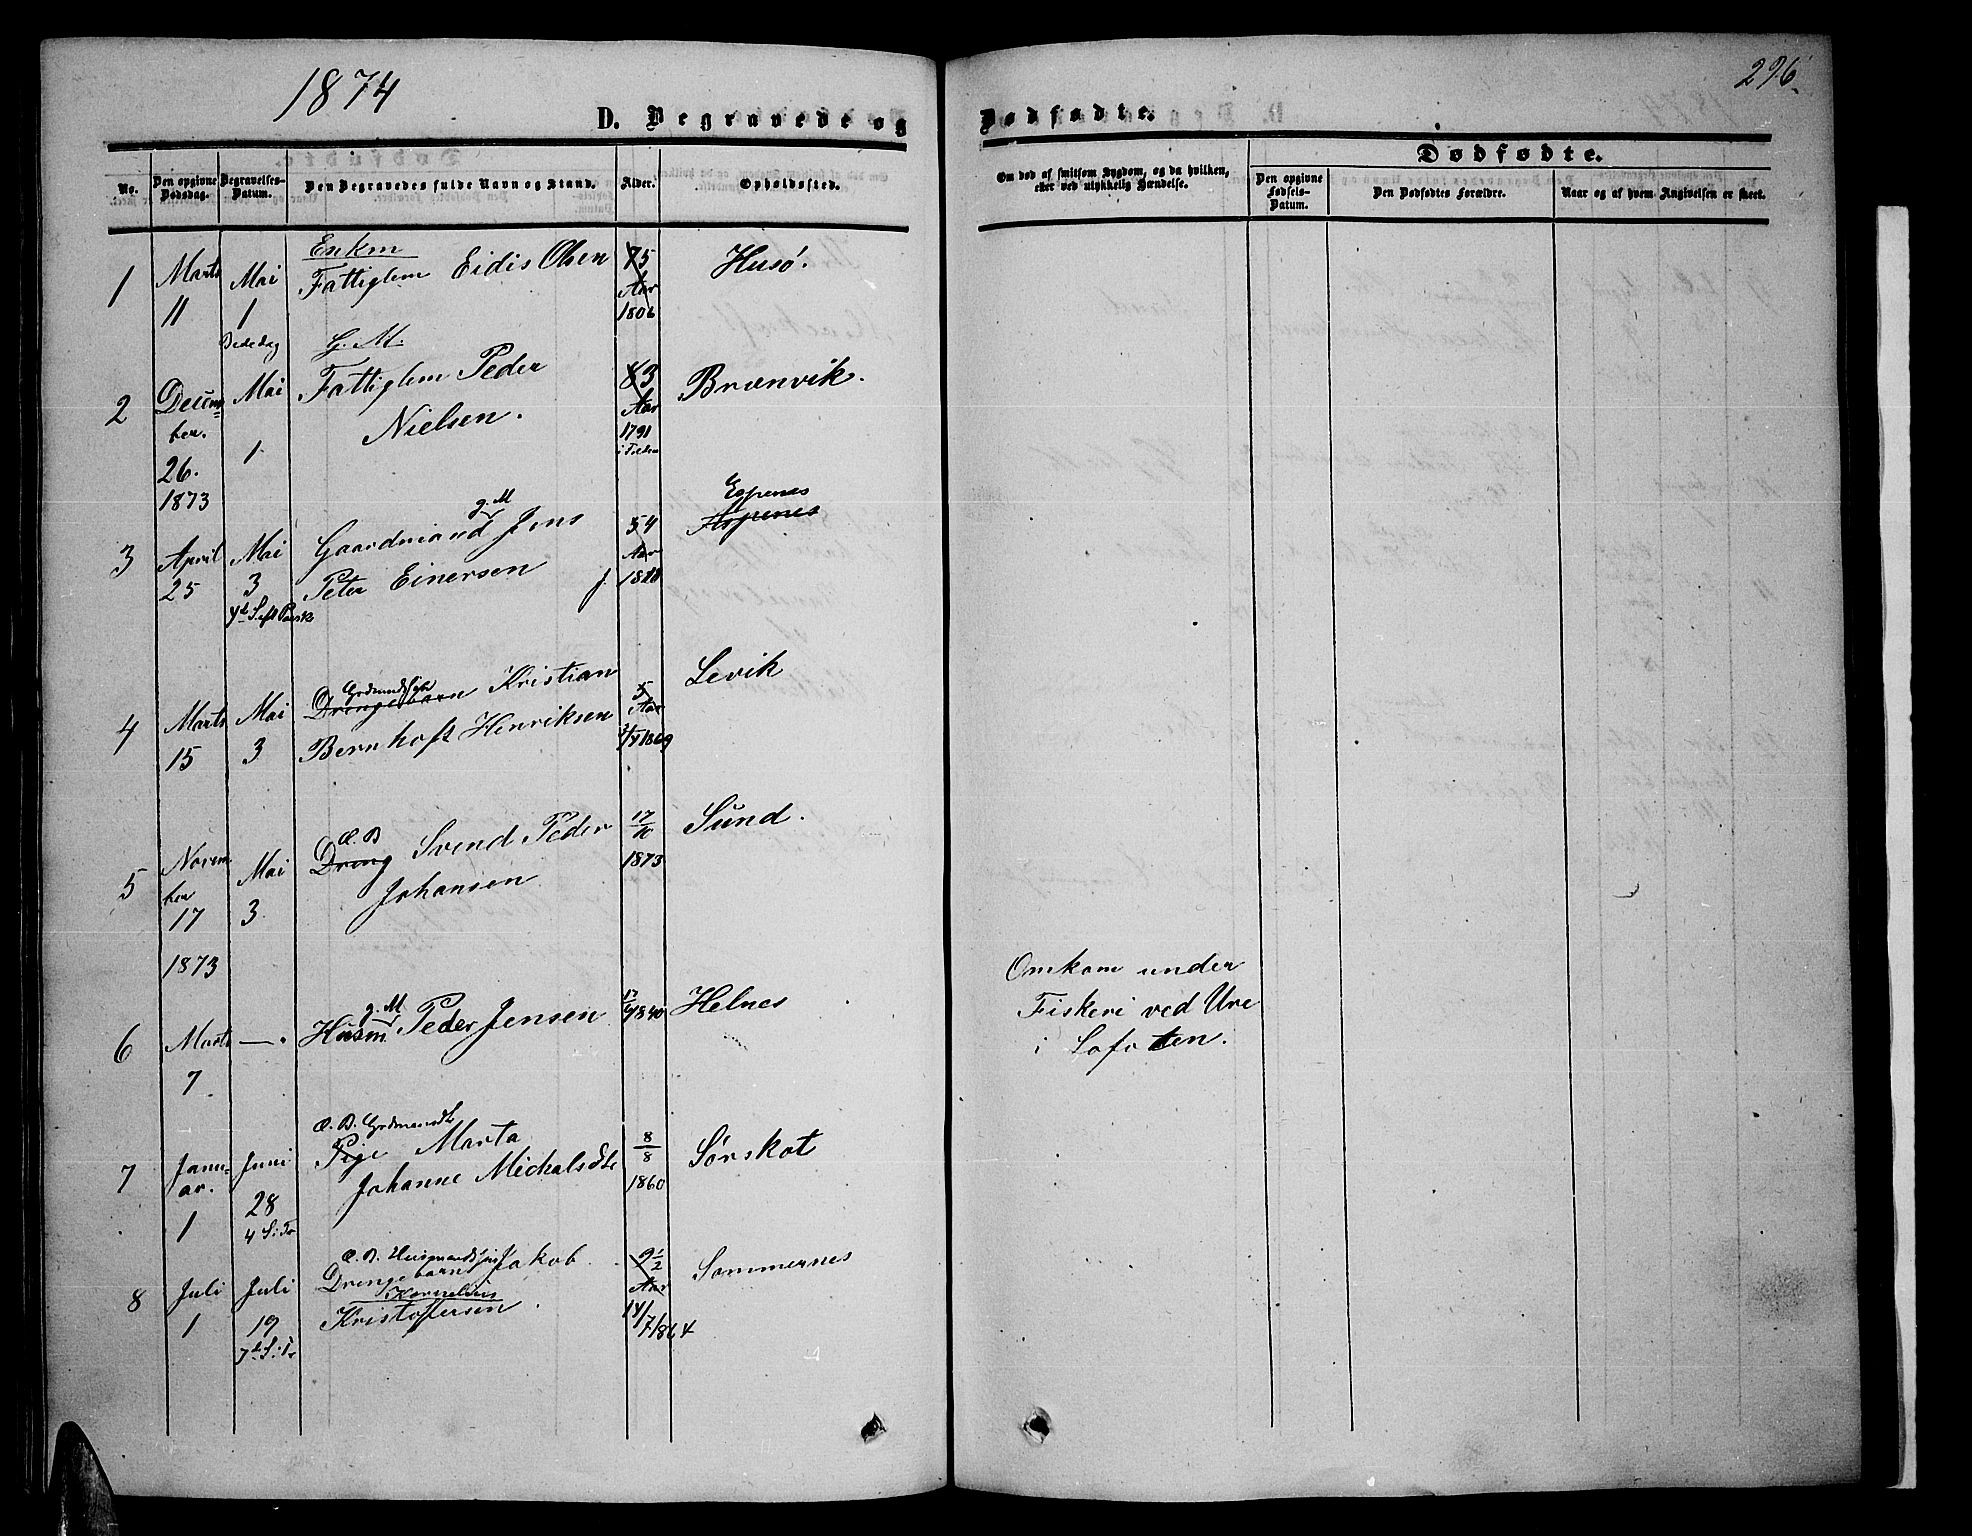 1874
296.
D. Begravede og
Dødfødte.
No.
Den opgivne Dødsdag.
Begravelses-Datum.
Den Begravedes fulde Navn og Stand.
Alder.
Opholdssted.
Om død af smitsom Sygdom, og da hvilken, eller ved ulykkelig Hændelse.
Dødfødte.
Den opgivne Fødsels-Datum.
Den Dødfødtes Forældre.
Naar og af hvem Angivelsen er skeet.
1
Marts
11
Mai
1
Bededag
Enkm
Fattiglem Eidis Olsen
75
Aar
1806
Husø.
2
Decem=
ber.
26.
1873
Mai
1
G. M.
Fattiglem Peder
Nielsen.
83
Aar
1791
Brænvik.
3
April
25
Mai
3
g. M
Gaardmand Jens
Peter Einersen
54
Aar
Espenes
4
Marts
15
Mai
3
Drengebarn Kristian
Bernhoft Henriksen
5
Aar
1869
Levik
5
Novem
ber
17
1873
Mai
3
Æ. B
Dreng Svend Peder
Johansen
17/10
1873
Sund.
6
Marts
7
—.
g. M
Husm Peder Jensen
1840
Helnes
Omkom under
Fiskeri ved Ure
i Lofoten.
7
Janu=
ar.
1
Juni
28
4 S: Tr
Æ. B. Grdmandsdt
Pige Marta
Johanne Michalsdt
8/8
1860
Sørskot
8
Juli
1
Juli
19
7d S: Tr
Æ. B.
Drengebarn Jakob
Kornelius
Kristofersen.
9 1/2
Aar
14/7 1864
Sommernes